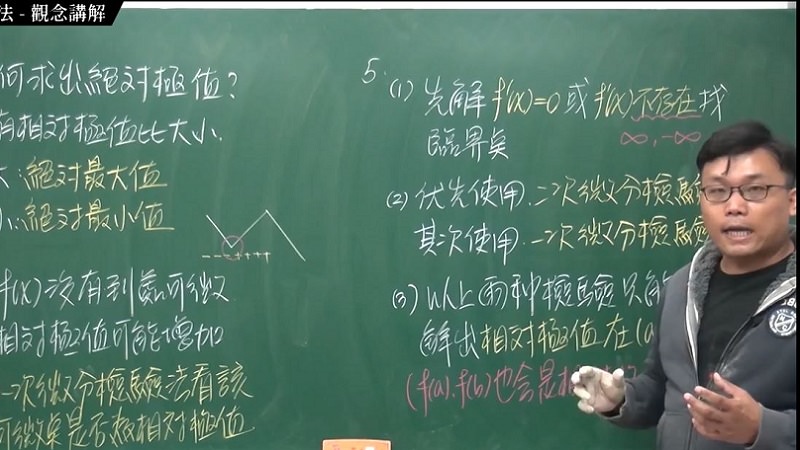 法 - 觀念講解
何求出絕對極值?
有相對極值比大小.
大:絕對最大值
小:絕對最小值
- - - + + + +
f(x)沒有到處可微
相對極值可能增加
一次微分檢驗法看該
可微點是否為相對極值
5. (1) 先解 f'(x)=0 或 f'(x)不存在找
∞, -∞
臨界點
(2) 優先使用.二次微分檢驗
其次使用.一次微分檢驗
(3) 以上兩種檢驗只能
解出相對極值在(a
(f(a).f(b)也会是相